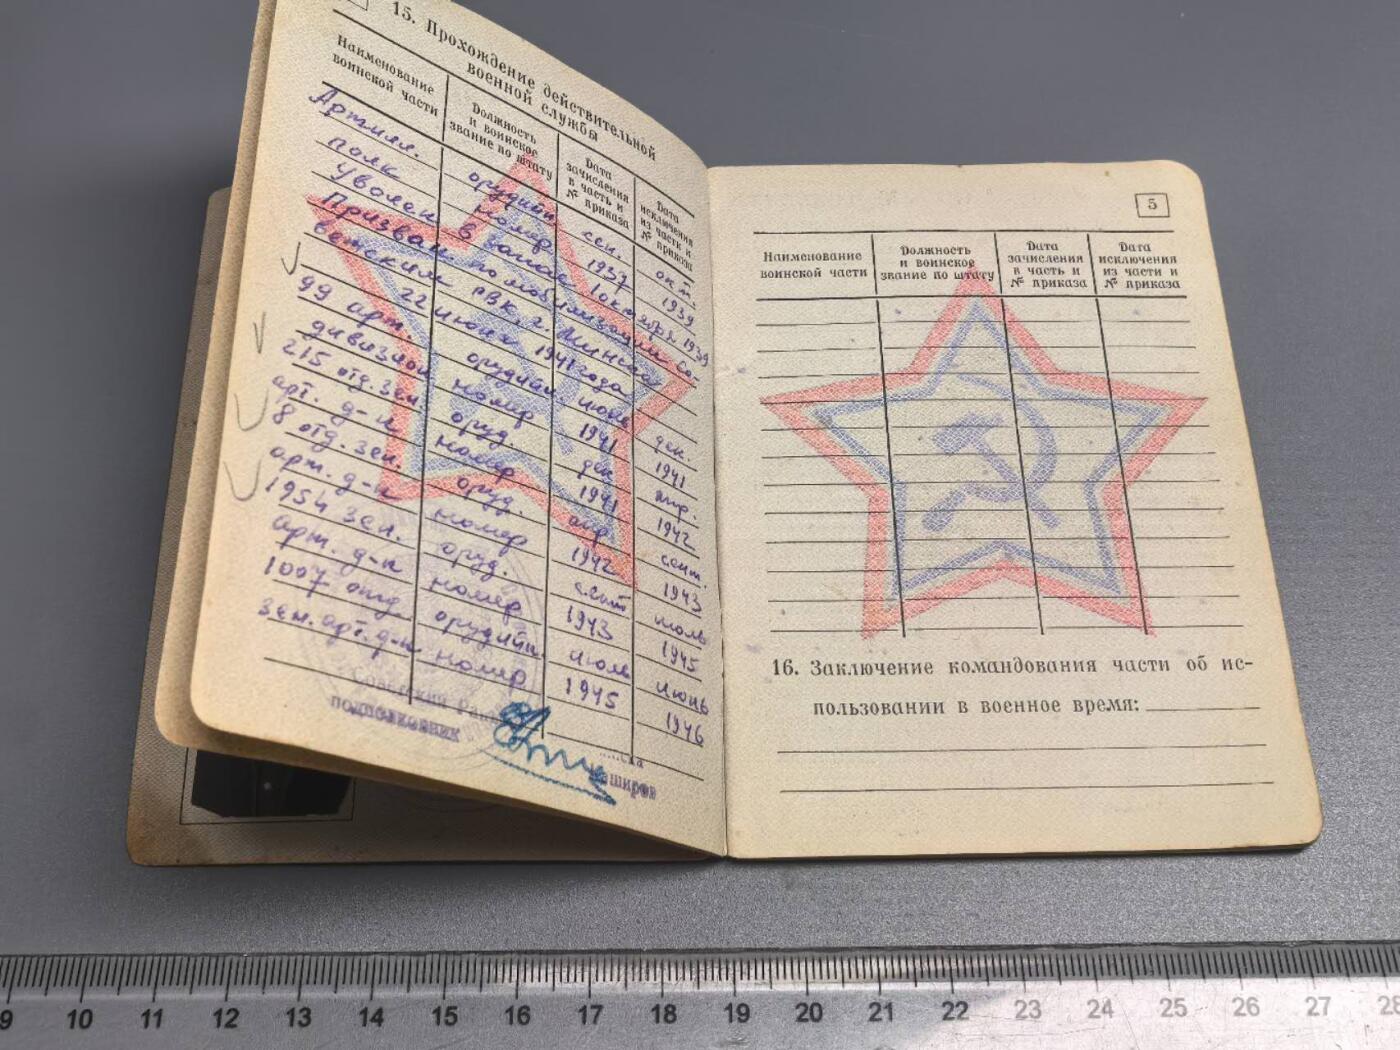 15. Прохождение действительной
военной службы
Наименование
воинской части
Должность
и воинское
звание по штату
Дата
зачисления
в часть и
№ приказа
Дата
исключения
из части и
№ приказа
Артил. орудийн. сен. окт.
полк номер 1937 1939
Уволен в запас 1 октября 1939
Призван по мобилизации Со-
ветским РВК, г. Минска
22 июня 1941 года
99 арт. орудийн июнь дек.
дивизион номер 1941 1941
215 отд. зен. оруд. дек апр.
арт. д-н номер 1941 1942
8 отд. зен. оруд. апр сент.
арт. д-н номер 1942 1943
1954 зен. оруд. сент июль
арт. д-н номер 1943 1945
1007 отд орудийн. июль июнь
зен. арт. д-н номер 1945 1946
подполковник
5
Наименование
воинской части
Должность
и воинское
звание по штату
Дата
зачисления
в часть и
№ приказа
Дата
исключения
из части и
№ приказа
16. Заключение командования части об ис-
пользовании в военное время:
9 10 11 12 13 14 15 16 17 18 19 20 21 22 23 24 25 26 27 28